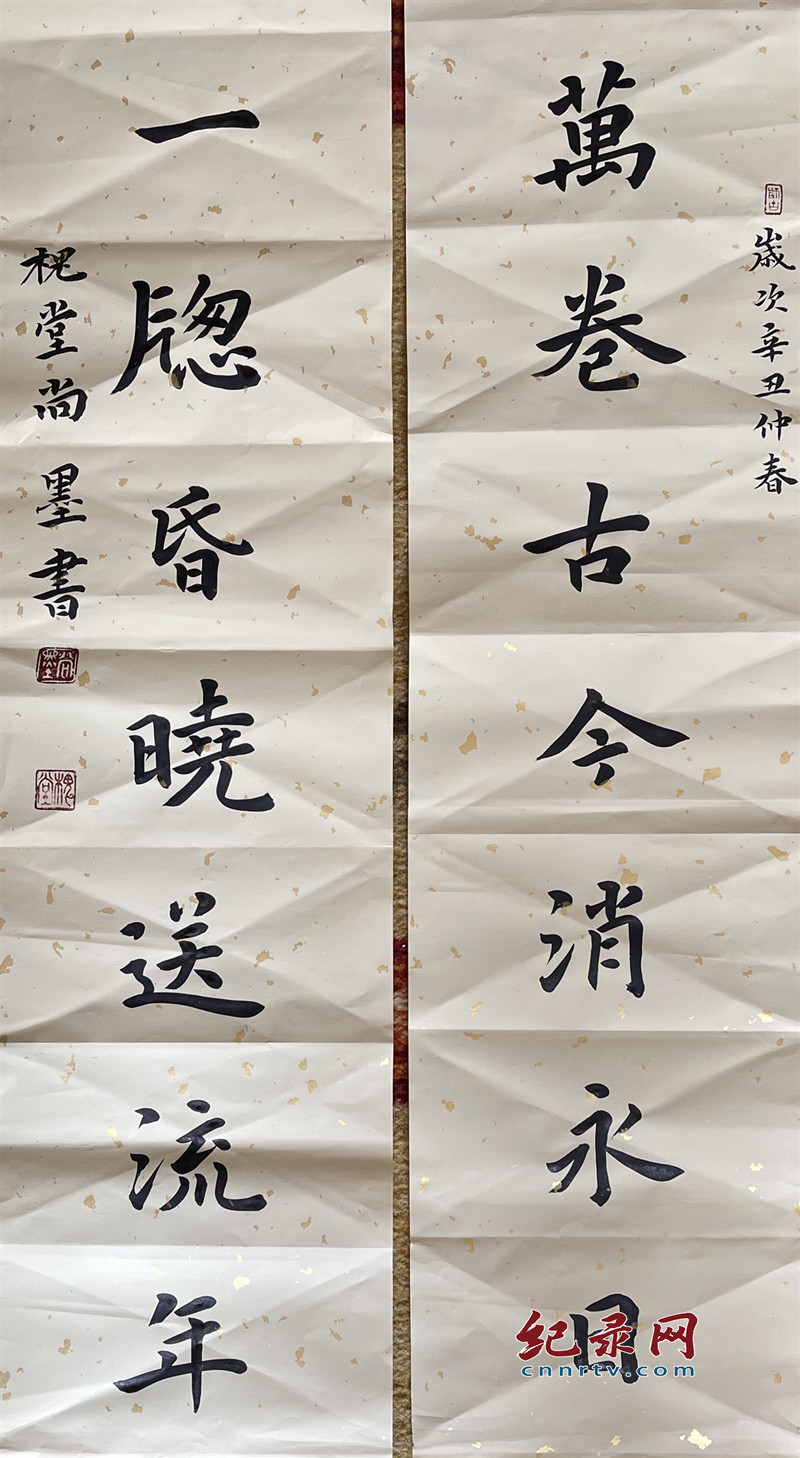 師古
歲次辛丑仲春
萬卷古今消永日
一牎昏曉送流年
槐堂尚墨書
尚墨
槐堂
纪录网
cnnrtv.com